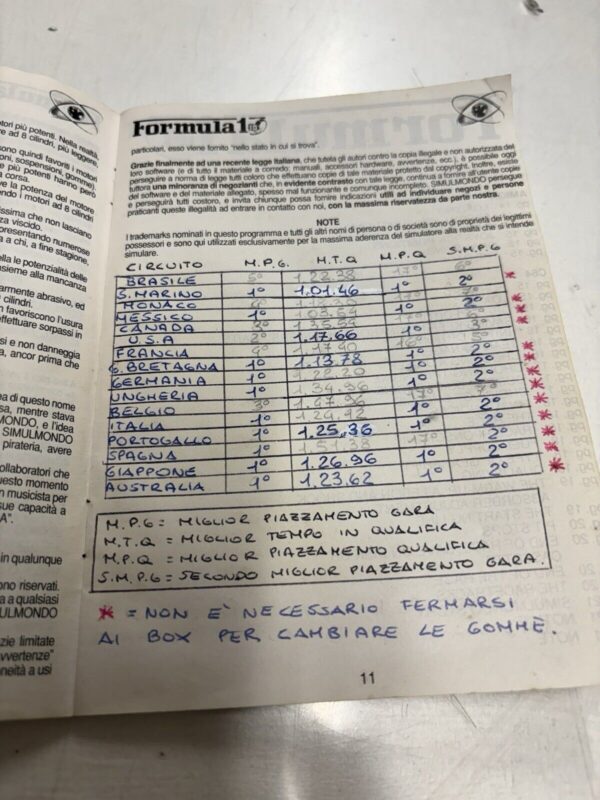 tori più potenti. Nella realtà,
re ad 8 cilindri, più leggere,
sono quindi favoriti i motori
oni, sospensioni, gomme).
più potenti hanno però
una corsa.
ve la potenza del motore
ndo i motori ad 8 cilindri
issima che non lasciano
presentando numerose
a chi, a fine stagione,
ella le potenzialità delle
nsieme alla mancanza
armente abrasivo, ed
cilindri.
n favoriscono l'usura
effettuare sorpassi in
si e non danneggia
a, ancor prima che
ea di questo nome
sa, mentre stava
MONDO, e l'idea
SIMULMONDO
pirateria, avere
ollaboratori che
uesto momento
n musicista per
sue capacità a
in qualunque
ono riservati.
a a qualsiasi
ULMONDO
zie limitate
vvertenze"
neità a usi
Formula1
particolari, esso viene fornito "nello stato in cui si trova".
Grazie finalmente ad una recente legge italiana, che tutela gli autori contro la copia illegale e non autorizzata del
loro software (e di tutto il materiale a corredo: manuali, accessori hardware, avvertenze, ecc.), è possibile oggi
perseguire a norma di legge tutti coloro che effettuano copie di tale materiale protetto dal copyright. Inoltre, esiste
tuttora una minoranza di negozianti che, in evidente contrasto con tale legge, continua a fornire all'utente copie
del software e del materiale allegato, spesso mal funzionante e comunque incompleto. SIMULMONDO persegue
e perseguirà tutti costoro, e invita chiunque possa fornire indicazioni utili ad individuare negozi e persone
praticanti queste illegalità ad entrare in contatto con noi, con la massima riservatezza da parte nostra.
NOTE
I trademarks nominati in questo programma e tutti gli altri nomi di persona o di società sono di proprietà dei legittimi
possessori e sono qui utilizzati esclusivamente per la massima aderenza del simulatore alla realtà che si intende
simulare.
CIRCUITO M.P.G. M.T.Q M.P.Q S.M.P.G
BRASILE 1.22.38 17° *
S.MARINO 1° 1.01.46 1° 2°
MONACO *
MESSICO 1° 1° 2° *
CANADA 3° 3° *
U.S.A 2° 1.17.66 1°
FRANCIA 1.17.90 *
G.BRETAGNA 1° 1.13.78 1° 2° *
GERMANIA 1° 1° 2° *
UNGHERIA 1° 1.34.96 1° 2° *
BELGIO 3° *
ITALIA 1° 1.24.12 1° 2° *
PORTOGALLO 1° 1.25.36 1° 2° *
SPAGNA 1° 17° *
GIAPPONE 1° 1.26.96 1° 2° *
AUSTRALIA 1° 1.23.62 1° 2° *
M.P.G = MIGLIOR PIAZZAMENTO GARA
M.T.Q = MIGLIOR TEMPO IN QUALIFICA
M.P.Q = MIGLIOR PIAZZAMENTO QUALIFICA
S.M.P.G = SECONDO MIGLIOR PIAZZAMENTO GARA.
* = NON E' NECESSARIO FERMARSI
AI BOX PER CAMBIARE LE GOMME.
11